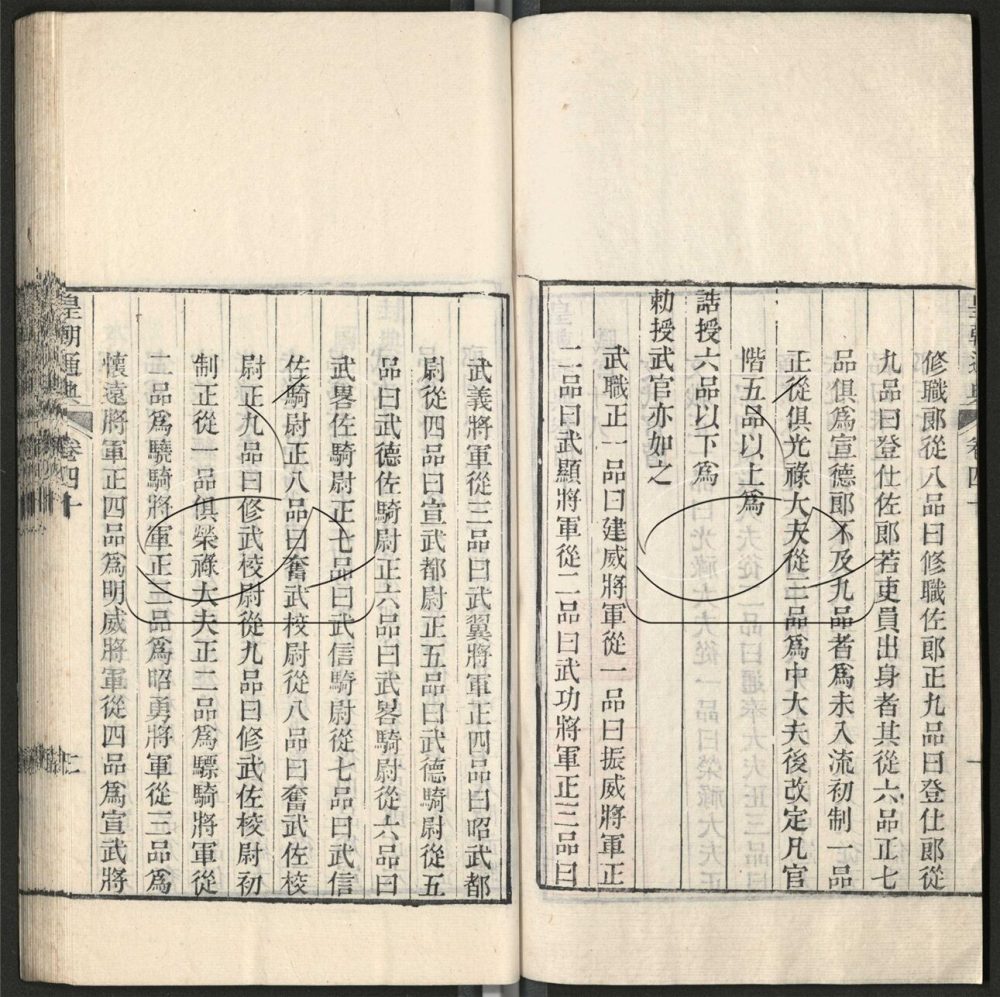 修職郎從八品曰修職佐郎正九品曰登仕郎從
九品曰登仕佐郎若吏員出身者其從六品正七
品俱爲宣德郎不及九品者爲未入流初制一品
正從俱光祿大夫從三品爲中大夫後改定凡官
階五品以上爲
誥授六品以下爲
勅授武官亦如之
武職正一品曰建威將軍從一品曰振威將軍正
二品曰武顯將軍從二品曰武功將軍正三品曰
武義將軍從三品曰武翼將軍正四品曰昭武都
尉從四品曰宣武都尉正五品曰武德騎尉從五
品曰武德佐騎尉正六品曰武畧騎尉從六品曰
武畧佐騎尉正七品曰武信騎尉從七品曰武信
佐騎尉正八品曰奮武校尉從八品曰奮武佐校
尉正九品曰修武校尉從九品曰修武佐校尉初
制正從一品俱榮祿大夫正二品爲驃騎將軍從
二品爲驍騎將軍正三品爲昭勇將軍從三品爲
懷遠將軍正四品爲明威將軍從四品爲宣武將
皇朝通典 卷四十